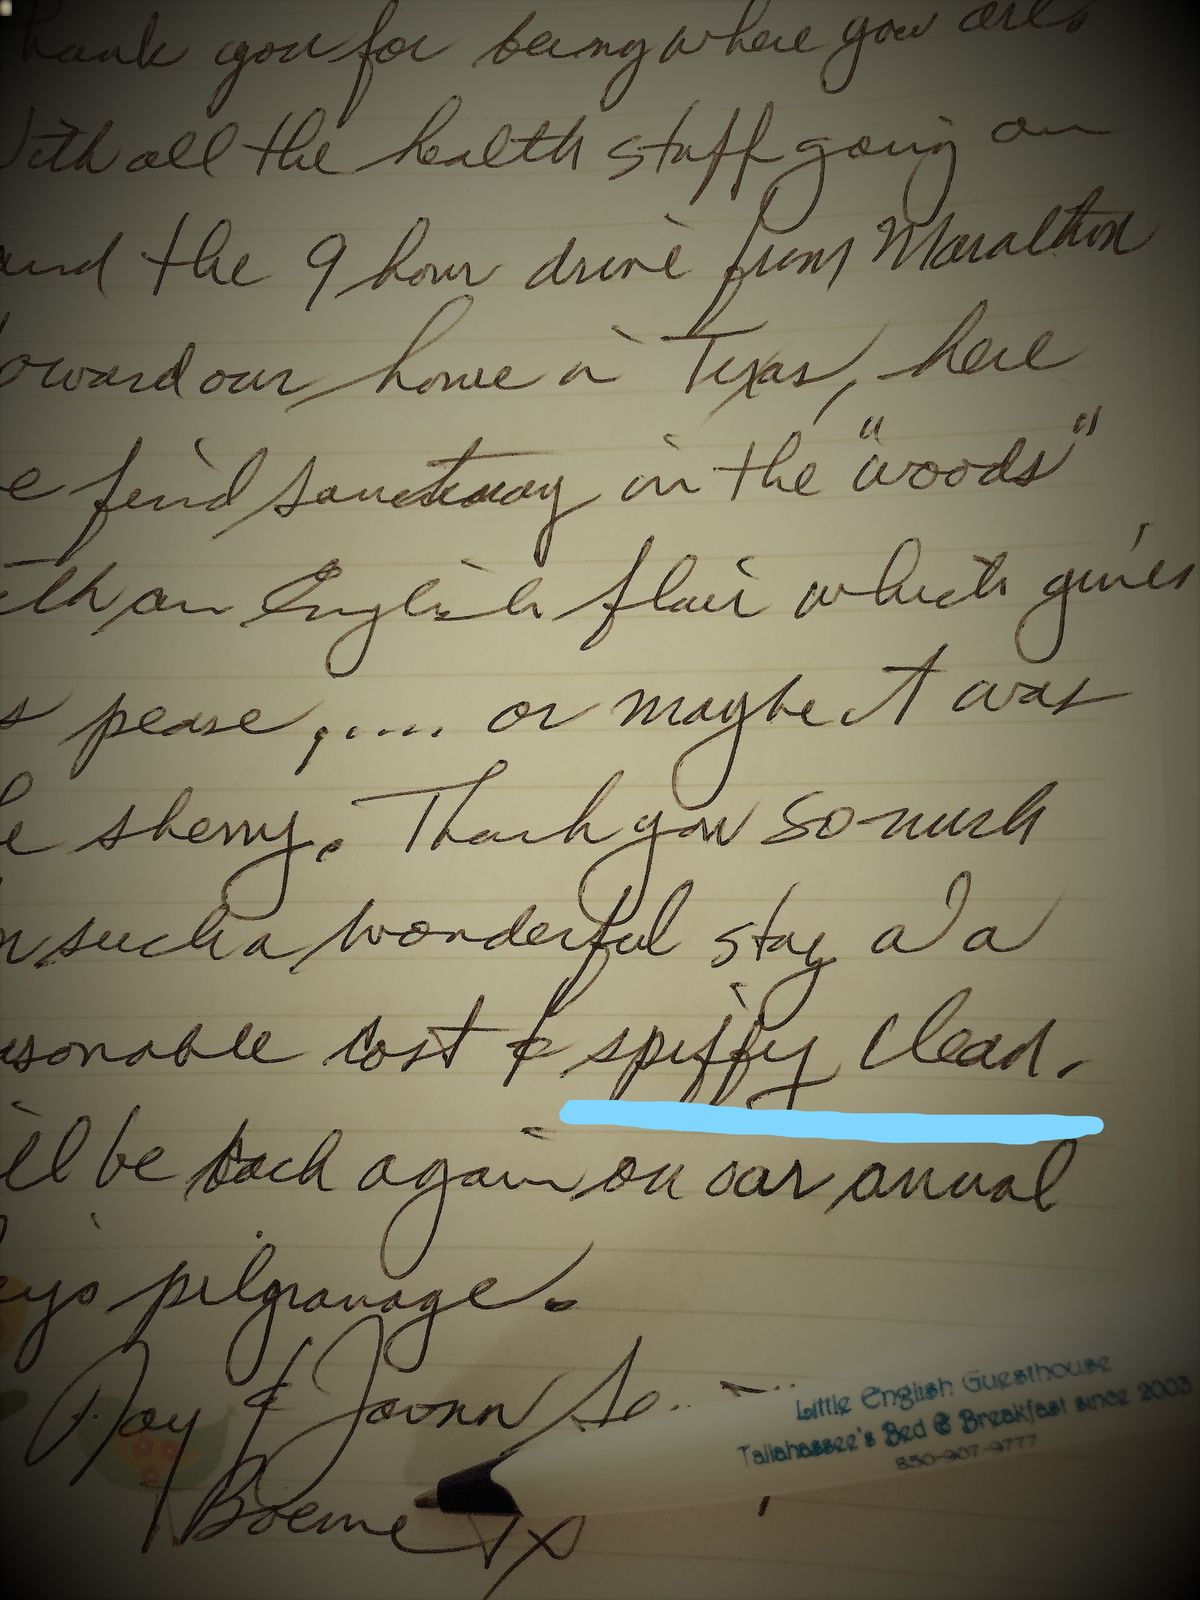 hank you for being where you are.
With all the health stuff going on
and the 9 hour drive from Marathon
oward our home in Texas, here
e find sanctuary in the "woods"
ith an English flair which gives
s pease ,.... or maybe it was
e sherry. Thank you so much
r such a wonderful stay at a
asonable cost & spiffy clean.
ill be back again on our annual
eys pilgranage.
Roy & Joann
Boerne TX
Little English Guesthouse
Tallahassee's Bed & Breakfast since 2003
850-907-9777